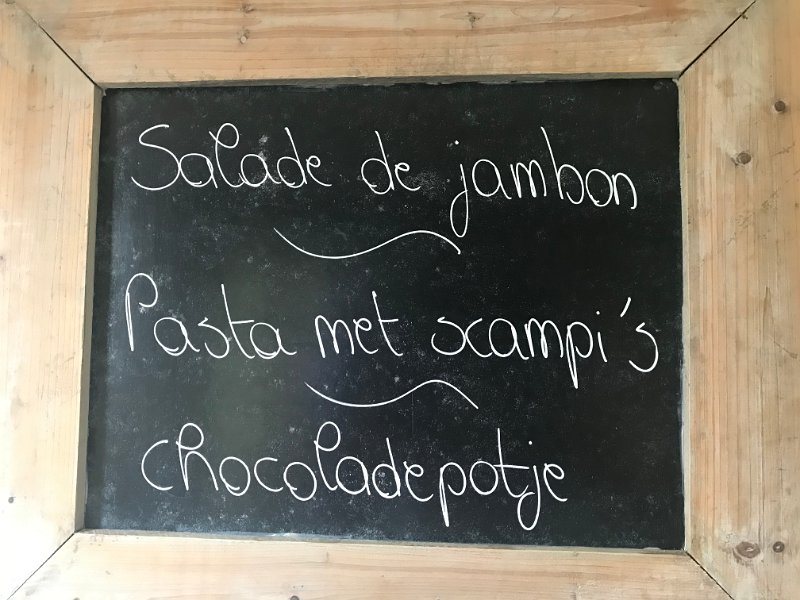 Salade de jambon
Pasta met scampi's
chocoladepotje